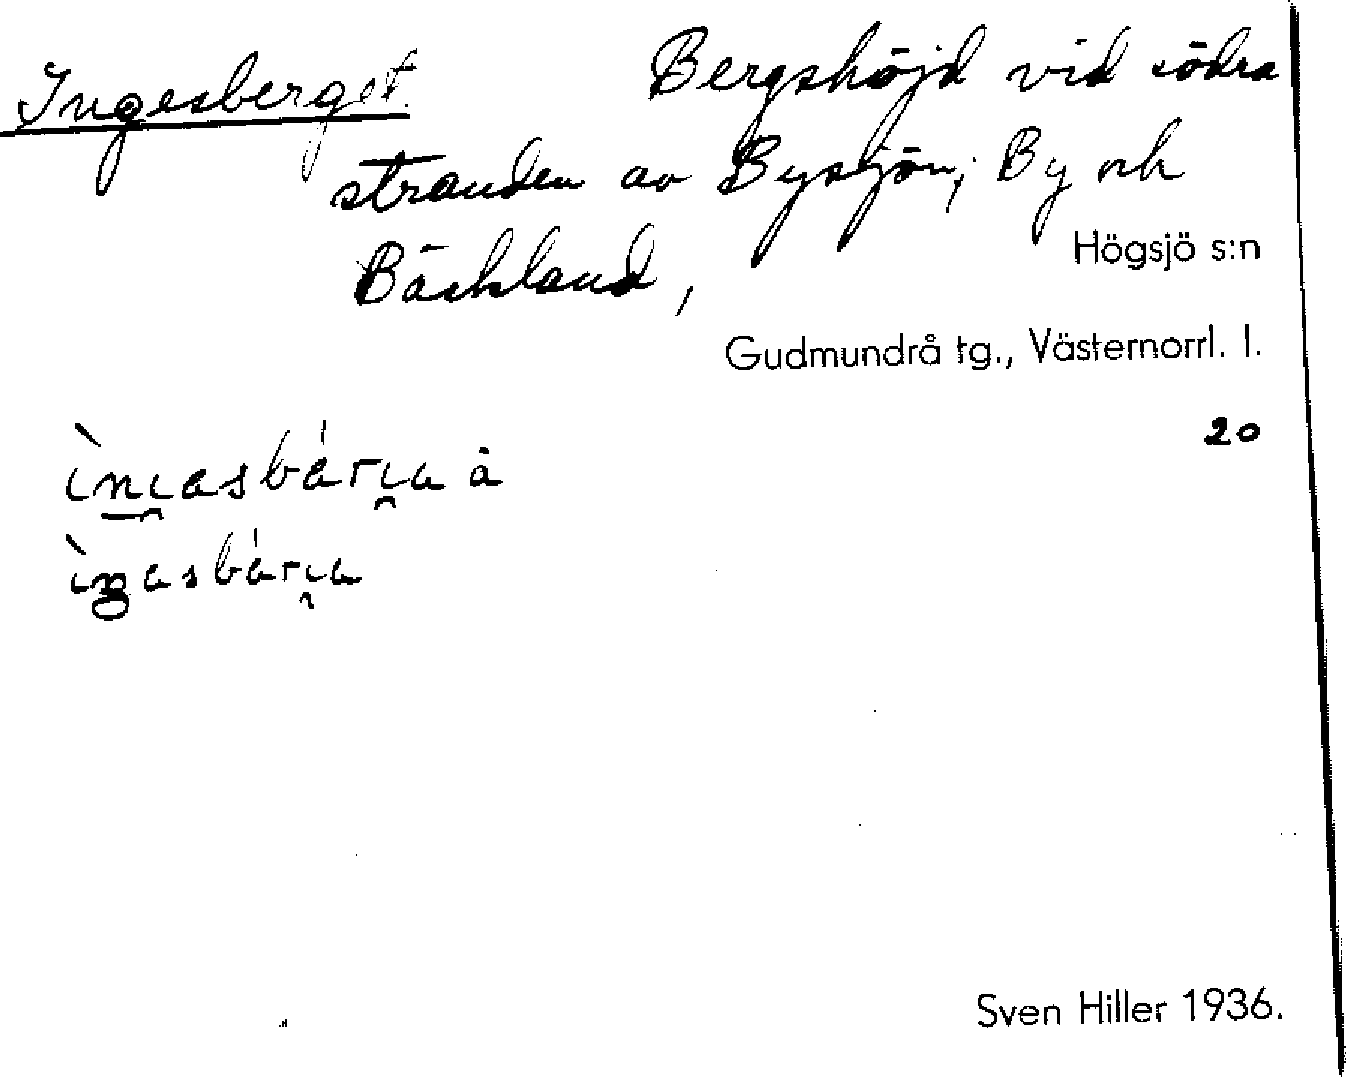 Ingesberget. Bergshöjd vid södra
stranden av Bysjön; By och
Högsjö s:n
Bäckland,
Gudmundrå tg., Västernorrl. l.
20
Sven Hiller 1936.